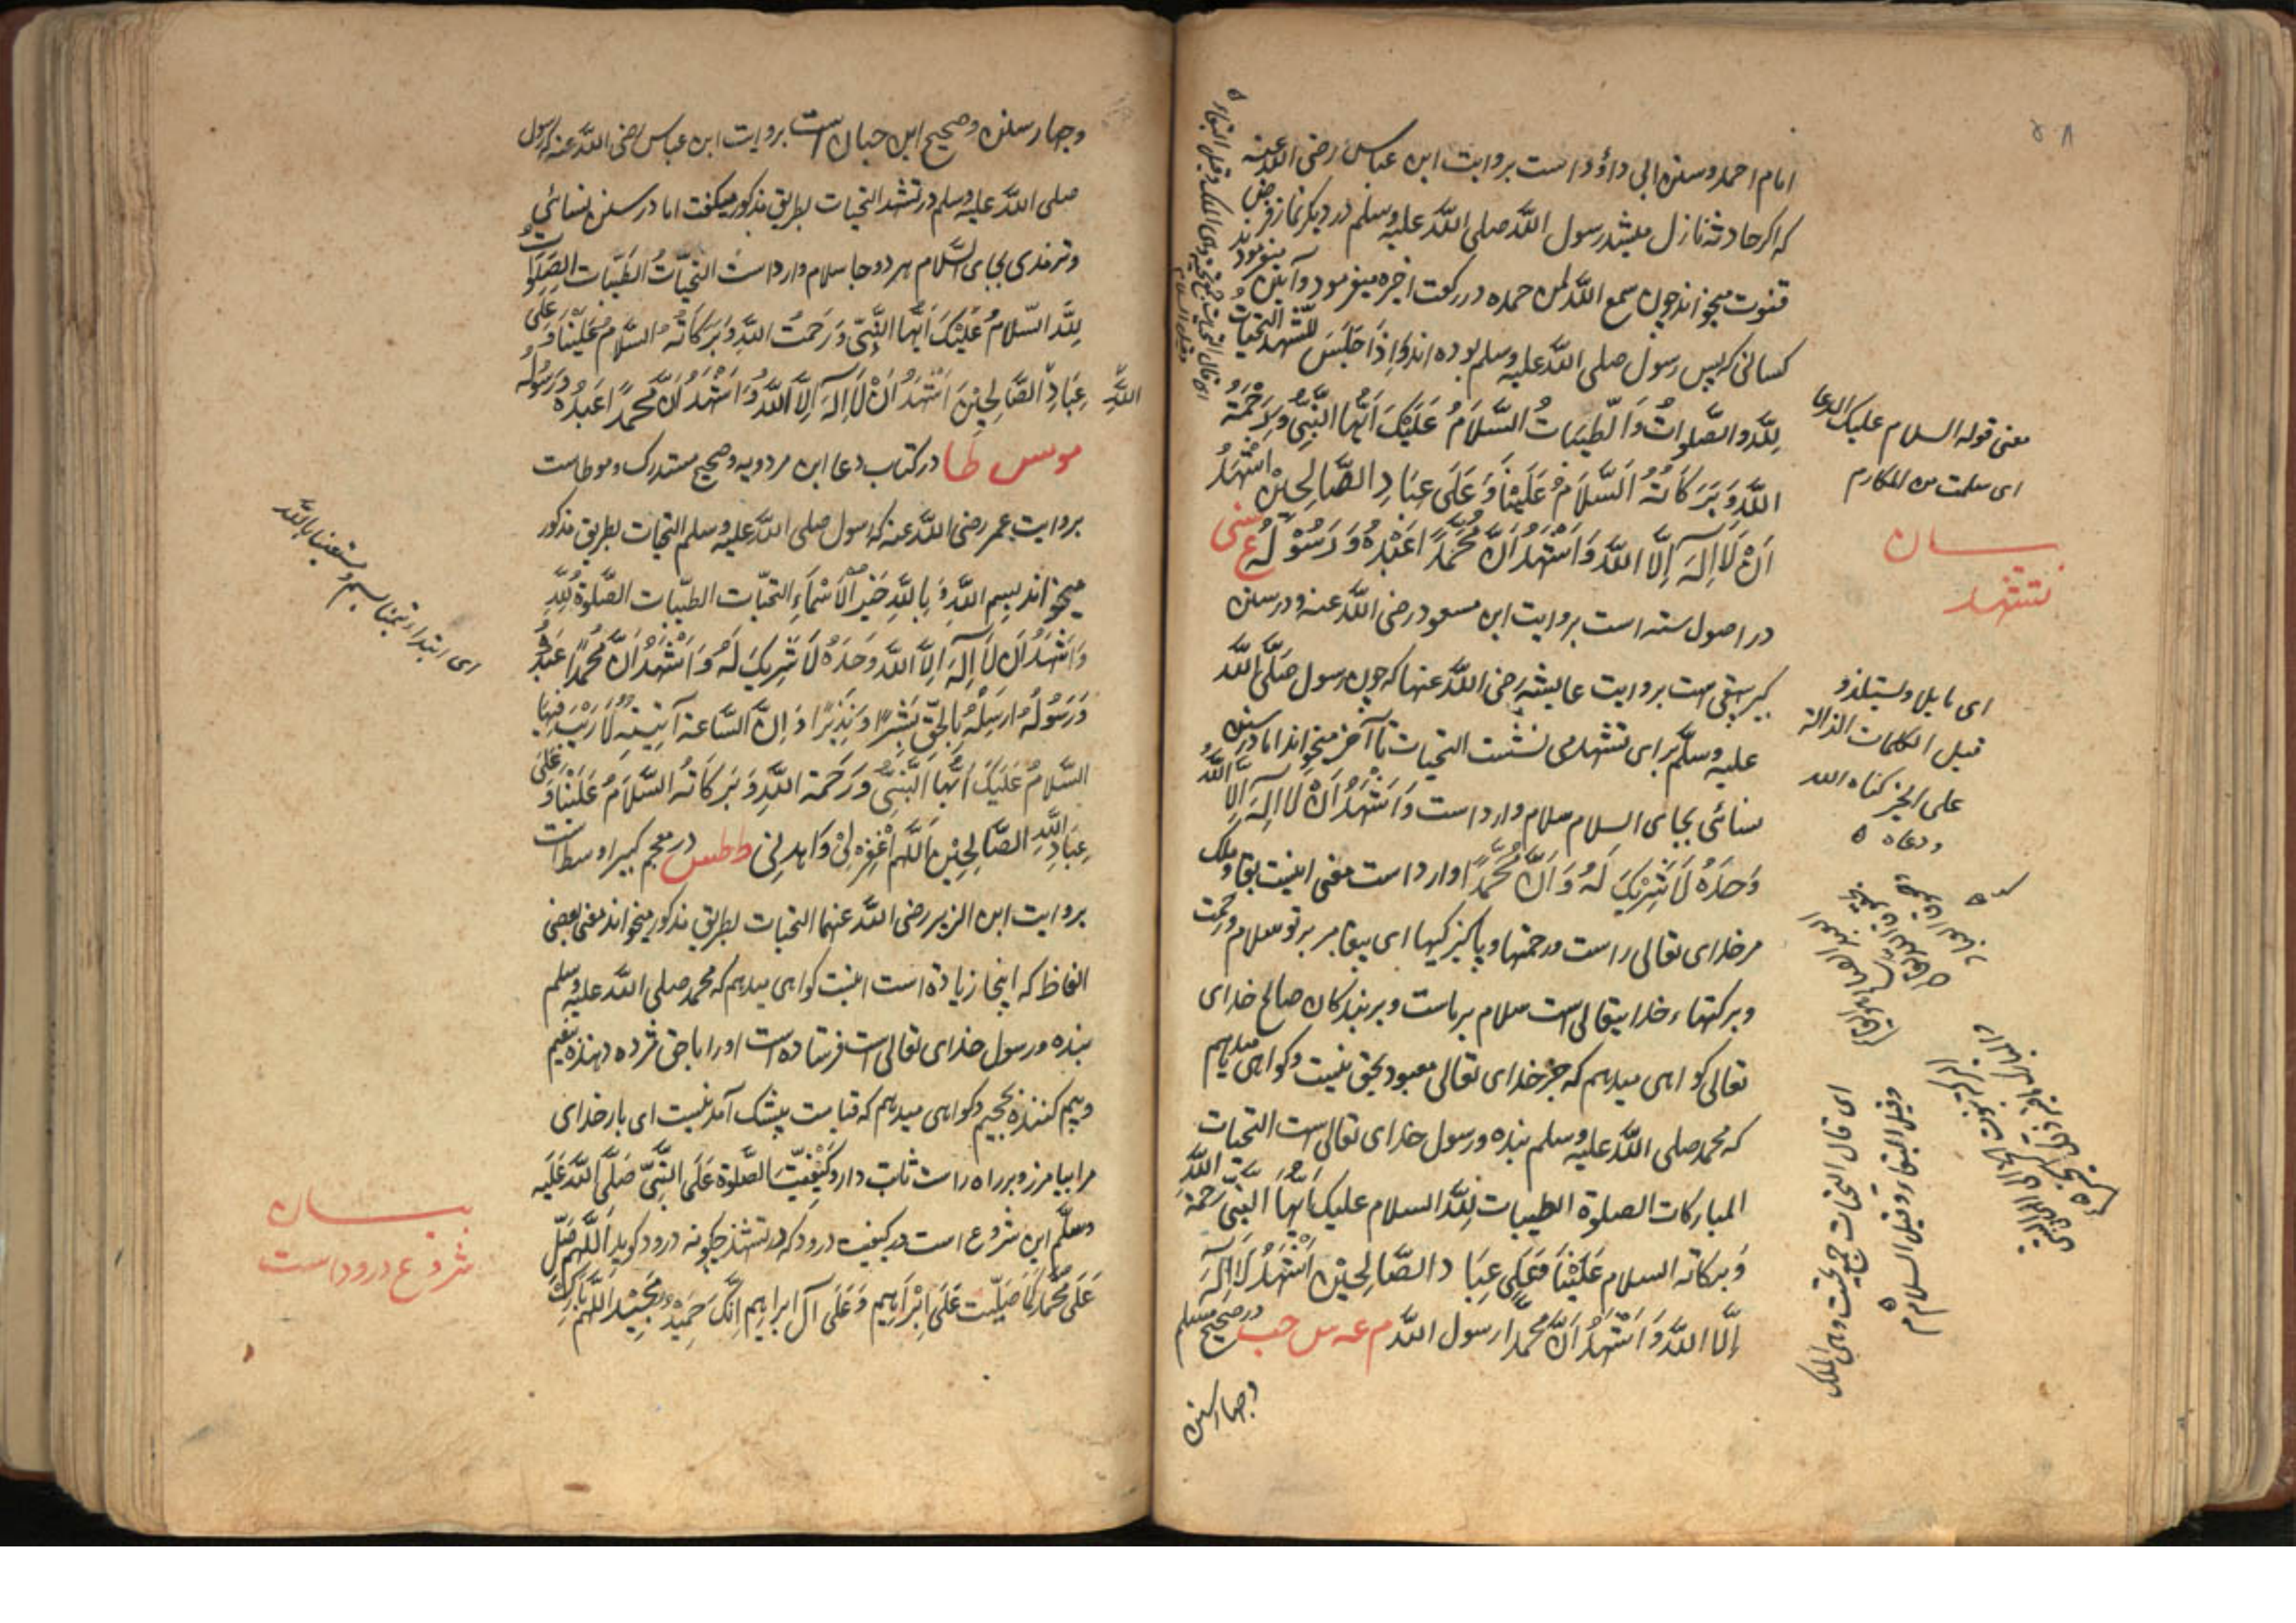 امام احمد و سنن ابی داؤد است بروایت ابن عباس رضی الله عنه
که اکر حادثه نازل میشد رسول الله صلی الله علیه وسلم در دیکر نماز فرض
قنوت میخواند چون سمع الله لمن حمده در رکعت اخیره میفرمود و آمین
کسانی که پس رسول صلی الله علیه وسلم بوده اند وَاِذَا جَلَسَ للتشهد التحیات
لِلّٰهِ والصَّلَواتُ وَالطَّیِّبَاتُ السَّلَامُ عَلَیْکَ اَیُّهَا النَّبِیُّ وَرَحْمَةُ
اللّٰهِ وَبَرَکَاتُهُ اَلسَّلَامُ عَلَیْنَا وَعَلَی عِبَادِ الصَّالِحِیْنَ اَشْهَدُ
اَنْ لَا اِلٰهَ اِلَّا اللّٰهُ وَاَشْهَدُ اَنَّ مُحَمَّدًا عَبْدُهُ وَرَسُوْلُهُ ع سنی
در اصول سته است بروایت ابن مسعود رضی الله عنه و در سنن
کبیر بیهقی است بروایت عایشه رضی الله عنها که چون رسول صلی الله
علیه وسلم برای تشهد می نشست التحیات تا آخر میخواند اما در سنن
نسائی بجای السلام سلام وارد است وَاَشْهَدُ اَنْ لَا اِلٰهَ اِلَّا اللّٰهُ
وَحْدَهُ لَا شَرِیْکَ لَهُ وَاَنَّ مُحَمَّدًا وارد است معنی اینست بقا و ملک
مر خدای تعالی راست و رحمتها و پاکیزکیها ای پیغامبر بر تو سلام و رحمت
و برکتهاء خدایتعالی است سلام بر ماست و بر بندکان صالح خدای
تعالی کواهی میدهم که جز خدای تعالی معبود بحق نیست و کواهی میدهم
که محمد صلی الله علیه وسلم بنده و رسول خدای تعالی است التحیات
المبارکات الصلوة الطیبات لِلّٰهِ السلام علیک اَیُّهَا النَّبِیُّ وَرَحْمَةُ اللّٰهِ
وَبَرکاته السلام عَلَیْنَا وَعَلَی عِبَادِ الصَّالِحِیْنَ اَشْهَدُ اَنْ لَا اِلٰهَ
اِلَّا اللّٰهُ وَاَشْهَدُ اَنَّ مُحَمَّدًا رسول الله م عه س حب در صحیح مسلم
وچهار سنن
معنی قوله السلام علیک الدعا
ای سلمت من المکارم
بیان
تشهد
قبل الکلمات الدالة
علی الخیر کناه الله
ودعاه
ای قال التحیات جمع تحیت وهی الملک
وقیل البقاء وقیل السلام
وچهار سنن و صحیح ابن حبان است بروایت ابن عباس رضی الله عنه که رسول
صلی الله علیه وسلم در تشهد التحیات بطریق مذکور میکفت اما در سنن نسائی
و ترمذی بجای السّلام هر دو جا سلام وارد است التحیّاتُ الطَّیِّبَات الصَّلَوَاتُ
لِلّٰهِ السَّلَامُ عَلَیْکَ اَیُّهَا النَّبِیُّ وَرَحْمَتُ اللّٰهِ وَبَرَکَاتُهُ السَّلَامُ عَلَیْنَا وَعَلَی
عِبَادِ اللّٰهِ الصَّالِحِیْنَ اَشْهَدُ اَنْ لَا اِلٰهَ اِلَّا اللّٰهُ وَاَشْهَدُ اَنَّ مُحَمَّدًا عَبْدُهُ وَرَسُوْلُهُ
مو س طا در کتاب دعا ابن مردویه و صحیح مستدرک و موطاست
بروایت عمر رضی الله عنه که رسول صلی الله علیه وسلم التحیات بطریق مذکور
میخواند بِسْمِ اللّٰهِ وَبِاللّٰهِ خَیْرِ الْاَسْمَاءِ التحیّات الطیّبات الصَّلٰوةُ لِلّٰهِ
وَاَشْهَدُ اَنْ لَا اِلٰهَ اِلَّا اللّٰهُ وَحْدَهُ لَا شَرِیْکَ لَهُ وَاَشْهَدُ اَنَّ مُحَمَّدًا عَبْدُهُ
وَرَسُوْلُهُ اَرْسَلَهُ بِالْحَقِّ بَشِیْرًا وَنَذِیْرًا وَاِنَّ السَّاعةَ آتِیَةٌ لَا رَیْبَ فِیْهَا
السَّلَامُ عَلَیْکَ اَیُّهَا النَّبِیُّ وَرَحْمَة اللّٰهِ وَبَرَکَاتُهُ السَّلَامُ عَلَیْنَا وَعَلَی
عِبَادِ اللّٰهِ الصَّالِحِیْنَ اَللّٰهُمَّ اغْفِرْ لِیْ وَاهْدِنِیْ ط طس در معجم کبیر اوسط است
بروایت ابن الزبیر رضی الله عنهما التحیات بطریق مذکور میخواند معنی بعضی
الفاظ که اینجا زیادة است اینست کواهی میدهم که محمد صلی الله علیه وسلم
بنده و رسول خدای تعالی است فرستاده است او را با حق مژده دهنده بنعیم
و بیم کننده بجحیم و کواهی میدهم که قیامت بیشک آمدنیست ای بار خدای
مرا بیامرز و بر راه راست ثابت دار وَکَیْفِیَّتُ الصَّلٰوةِ عَلَی النَّبِیِّ صَلَّی اللّٰهُ عَلَیْهِ
وسلّم این شروع است در کیفیت درود که در تشهد چکونه درود کوید اَللّٰهُمَّ صَلِّ
عَلَی مُحَمَّدٍ کَمَا صَلَّیْتَ عَلَی اِبْرَاهِیْمَ وَعَلَی آلِ ابراهیم اِنَّکَ حَمِیْدٌ مَجِیْدٌ اللّٰهُمَّ بَارِکْ
بیان
شروع درود است